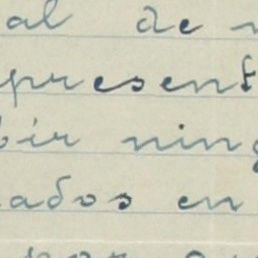 al de
presen
bir nin
ados en
por